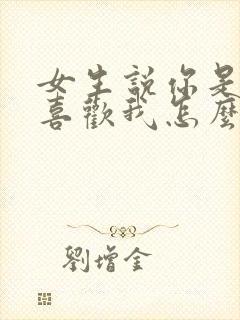 女生說你是
喜歡我怎麼
劉增全